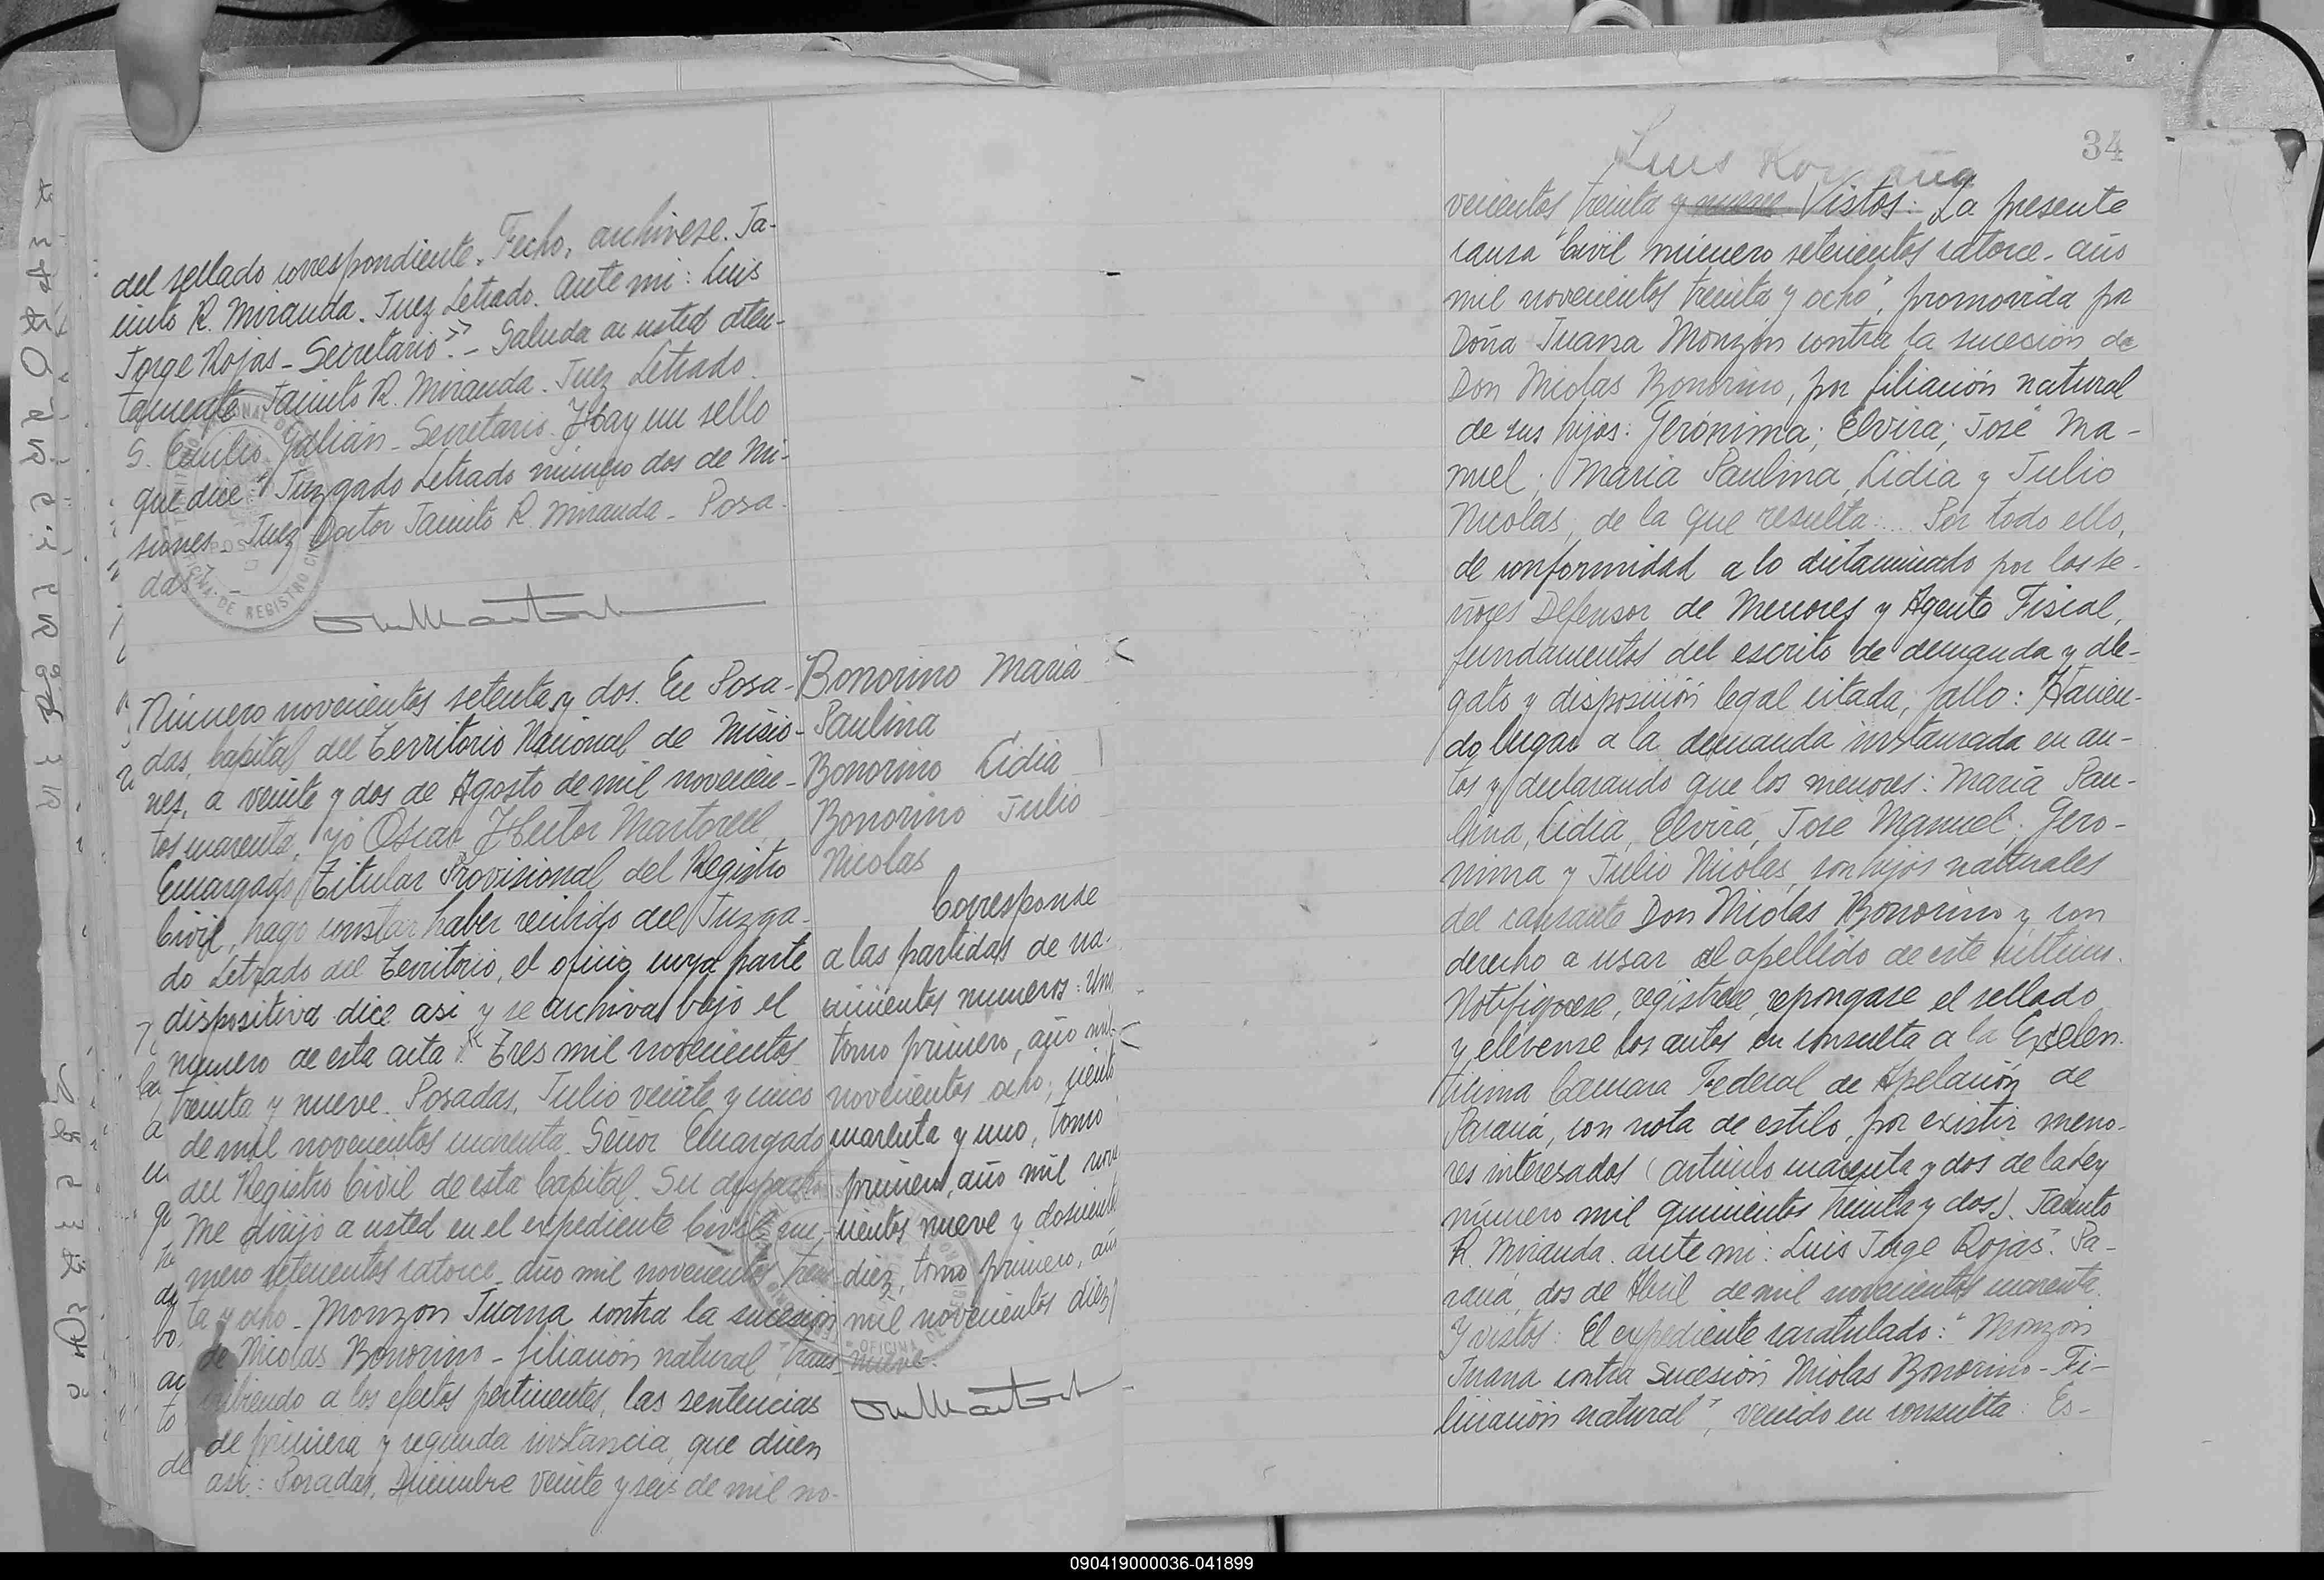 del sellado correspondiente. Fecho, archivese. Ja-
cinto R. Miranda. Juez Letrado. Ante mi: Luis
Jorge Rojas - Secretario". - Saluda a usted aten-
tamente Jacinto R. Miranda. Juez Letrado.
S. Emilio Julián - Secretario. Hay un sello
que dice "Juzgado Letrado número dos de Mi-
siones - Juez Doctor Jacinto R. Miranda - Posa-
das". -
Número novecientos setenta y dos. En Posa-
das, Capital del Territorio Nacional de Misio-
nes, a veinte y dos de Agosto de mil novecien-
tos cuarenta, yo Oscar Hector Martorell
Encargado Titular Provisional del Registro
Civil, hago constar haber recibido del Juzga-
do Letrado del Territorio, el oficio cuya parte
dispositiva dice asi y se archiva bajo el
numero de esta acta: "Tres mil novecientos
treinta y nueve. Posadas, Julio veinte y cinco
de mil novecientos cuarenta. Señor Encargado
del Registro Civil de esta Capital. Su despacho
Me dirijo a usted en el expediente Civil nu-
mero setecientos catorce - año mil novecientos trein-
ta y ocho - Monzon Juana contra la sucesión
de Nicolas Bonorino - filiación natural, trans-
cribiendo a los efectos pertinentes, las sentencias
de primera y segunda instancia, que dicen
asi: Posadas, Diciembre veinte y seis de mil no-
Bonorino Maria
Paulina
Bonorino Lidia
Bonorino Julio
Nicolas
Corresponde
a las partidas de na-
cimientos numeros: Uno
tomo primero, año mil
novecientos ocho; ciento
cuarenta y uno, tomo
primero, año mil nove
cientos nueve y doscientos
diez, tomo primero, año
mil novecientos diez y
nueve.
34
Luis Romaña
vecientos treinta y nueve. Vistos: La presente
causa "Civil número setecientos catorce - año
mil novecientos treinta y ocho", promovida por
Doña Juana Monzón contra la sucesión de
Don Nicolas Bonorino, por filiación natural
de sus hijos: Gerónima; Elvira; José Ma-
nuel; Maria Paulina, Lidia y Julio
Nicolas, de la que resulta:... Por todo ello,
de conformidad a lo dictaminado por los se-
ñores Defensor de Menores y Agente Fiscal,
fundamentos del escrito de demanda y ale-
gato y disposición legal citada, fallo: "Hacien-
do lugar a la demanda instaurada en au-
tos y declarando que los menores: Maria Pau-
lina, Lidia, Elvira, Jose Manuel, Gero-
nima y Julio Nicolas, son hijos naturales
del causante Don Nicolas Bonorino y con
derecho a usar el apellido de este último.
Notifiquese, registrese, repongase el sellado
y elévense los autos en consulta a la Excelen-
tisima Camara Federal de Apelación de
Paraná, con nota de estilo, por existir meno-
res interesados (articulo cuarenta y dos de la Ley
número mil quinientos treinta y dos). Jacinto
R. Miranda. ante mi: Luis Jorge Rojas". Pa-
raná, dos de Abril de mil novecientos cuarenta.
Y vistos: El expediente caratulado: "Monzon
Juana contra Sucesión Nicolas Bonorino - Fi-
liación natural", venido en consulta: Es-
090419000036-041899